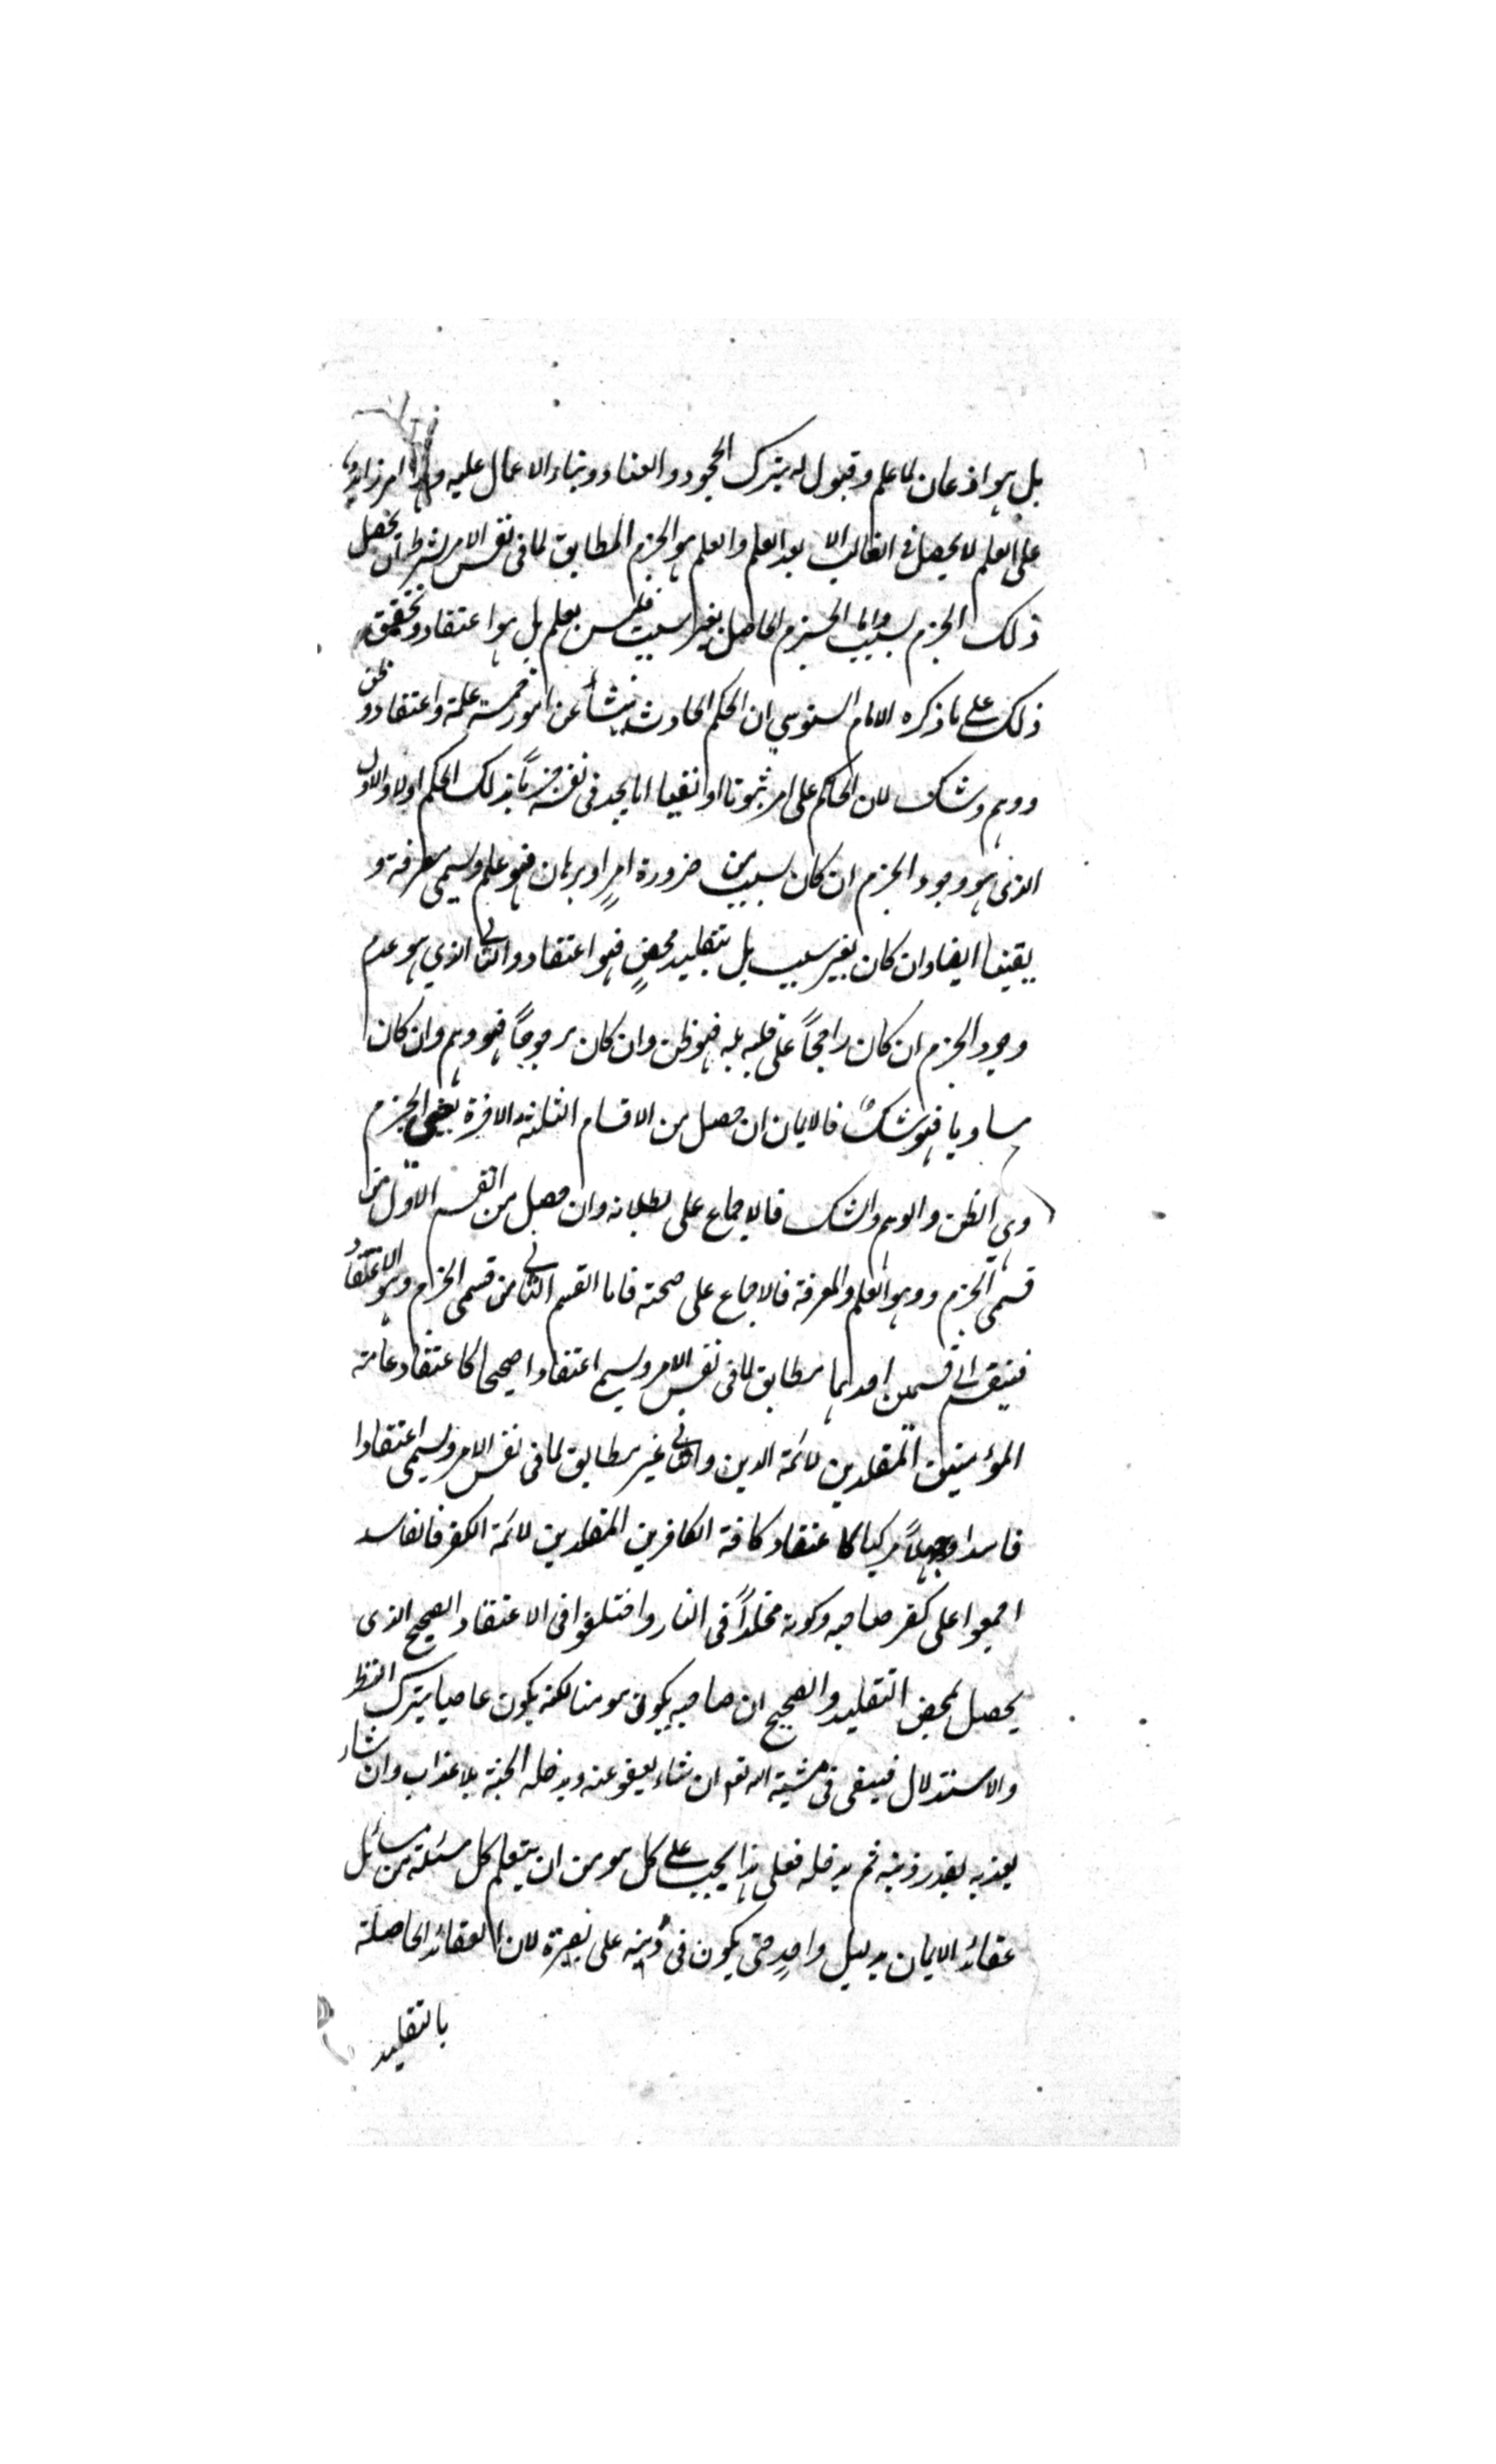 بل هو اذعان لما علم وقبول له بترك الجحود والعناد وبناء الاعمال عليه وهذا امر زائد
على العلم لا يحصل في الغالب الا بعد العلم والعلم هو الجزم المطابق لما في نفس الامر بشرط ان يحصل
ذلك الجزم بسبب واما الجزم الحاصل بغير سبب فليس بعلم بل هو اعتقاد وتحقيق
ذلك على ما ذكره الامام السنوسي ان الحكم الحادث ينشأ عن امور خمسة علم واعتقاد وظن
ووهم وشك لان الحاكم على امر ثبوتا او نفيا اما يجد في نفسه جزماً بذلك الحكم اولا والاول
الذي هو وجود الجزم ان كان لسبب من ضرورة امرٍ او برهان فهو علم ويسمى معرفة و
يقينا ايضا وان كان بغير سبب بل بتقليد محضٍ فهو اعتقاد والثاني الذي هو عدم
وجود الجزم ان كان راجحاً على مقابله فهو ظن وان كان مرجوحاً فهو وهم وان كان
مساويا فهو شكٌ فالايمان ان حصل من الاقسام الثلثة الاخيرة بغير الجزم
وهي الظن والوهم والشك فالاجماع على بطلانه وان حصل من القسم الاول من
قسمي الجزم وهو العلم والمعرفة فالاجماع على صحته فاما القسم الثاني من قسمي الجزم وهو الاعتقاد
فينقسم الى قسمين احدهما مطابق لما في نفس الامر ويسمى اعتقادا صحيحا كاعتقاد عامة
المؤمنين المقلدين لائمة الدين والثاني غير مطابق لما في نفس الامر ويسمى اعتقادا
فاسدا وجهلاً مركبا كاعتقاد كافة الكافرين المقلدين لائمة الكفر فالفاسد
اجمعوا على كفر صاحبه وكونه مخلداً في النار واختلفوا في الاعتقاد الصحيح الذي
يحصل بمحض التقليد والصحيح ان صاحبه يكون مومنا لكنه يكون عاصيا بترك النظر
والاستدلال فيبقى في مشية الله تع ان شاء يعفو عنه ويدخله الجنة بلا عذاب وان شاء
يعذبه بقدر ذنبه ثم يدخله فعلى هذا يجب على كل مومن ان يتعلم كل مسئلة من مسائل
عقائد الايمان بدليل واحدٍ حتى يكون في دينه على بصيرة لان العقائد الحاصلة
بالتقليد